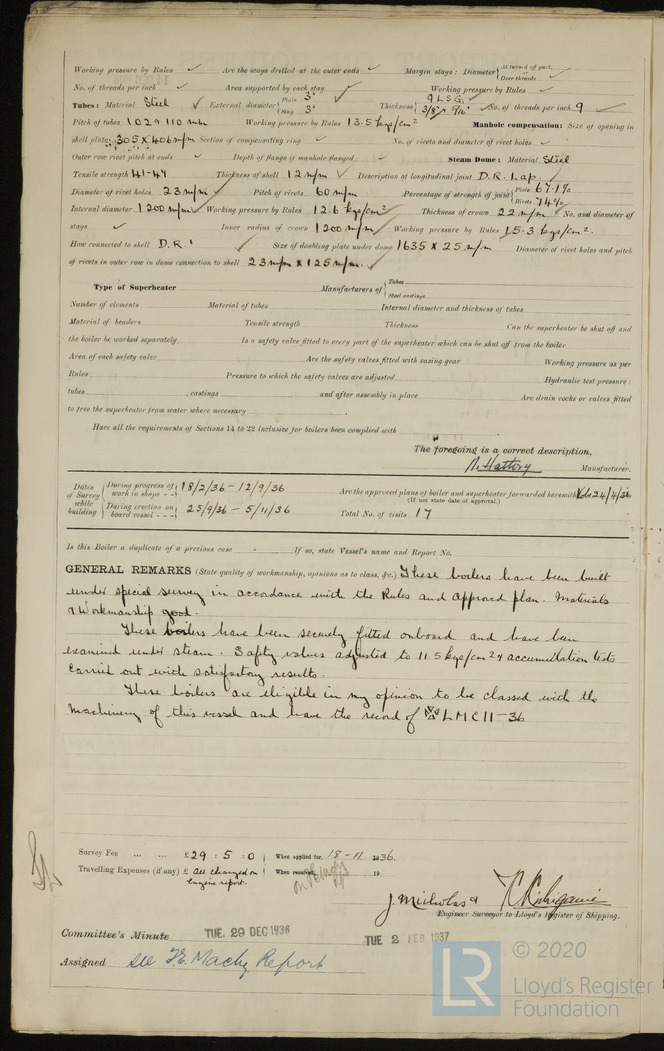 Working pressure by Rules ✓ Are the stays drilled at the outer ends ✓ Margin stays : Diameter { At turned off part, Over threads ✓
No. of threads per inch ✓ Area supported by each stay ✓ Working pressure by Rules ✓
Tubes : Material Steel ✓ External diameter { Plain 3" Stay 3" Thickness { 9 L.S.G. 3/8" & 5/16" ✓ No. of threads per inch 9 ✓
Pitch of tubes 102 & 110 m/m Working pressure by Rules 13.5 kgs/cm² Manhole compensation: Size of opening in
shell plate 305 X 406 m/m Section of compensating ring ✓ No. of rivets and diameter of rivet holes ✓
Outer row rivet pitch at ends ✓ Depth of flange if manhole flanged ✓ Steam Dome : Material Steel
Tensile strength 41-47 Thickness of shell 12 m/m Description of longitudinal joint D.R. Lap. ✓
Diameter of rivet holes 23 m/m ✓ Pitch of rivets 60 m/m Percentage of strength of joint { Plate 67.1% Rivets 74%
Internal diameter 1200 m/m ✓ Working pressure by Rules 12.6 kgs/cm² Thickness of crown 22 m/m ✓ No. and diameter of
stays ✓ Inner radius of crown 1200 m/m ✓ Working pressure by Rules 15.3 kgs/cm².
How connected to shell D.R. ✓ Size of doubling plate under dome 1635 X 25 m/m Diameter of rivet holes and pitch
of rivets in outer row in dome connection to shell 23 m/m X 125 m/m. ✓
Type of Superheater Manufacturers of { Tubes Steel castings
Number of elements Material of tubes Internal diameter and thickness of tubes
Material of headers Tensile strength Thickness Can the superheater be shut off and
the boiler be worked separately Is a safety valve fitted to every part of the superheater which can be shut off from the boiler
Area of each safety valve Are the safety valves fitted with easing gear Working pressure as per
Rules Pressure to which the safety valves are adjusted Hydraulic test pressure :
tubes , castings and after assembly in place Are drain cocks or valves fitted
to free the superheater from water where necessary
Have all the requirements of Sections 14 to 22 inclusive for boilers been complied with
The foregoing is a correct description,
Manufacturer.
Dates of Survey while building { During progress of work in shops - - 18/2/36 – 12/9/36 Are the approved plans of boiler and superheater forwarded herewith 24/4/36
(If not state date of approval.)
During erection on board vessel - - - 25/9/36 – 5/11/36 Total No. of visits 17
Is this Boiler a duplicate of a previous case If so, state Vessel's name and Report No.
GENERAL REMARKS (State quality of workmanship, opinions as to class, &c.) These boilers have been built
under special survey in accordance with the Rules and approved plan. Materials
& Workmanship good.
These boilers have been securely fitted onboard and have been
examined under steam. Safety valves adjusted to 11.5 kgs/cm² & accumulation tests
carried out with satisfactory results.
These boilers are eligible in my opinion to be classed with the
Machinery of this vessel and have the record of LMC 11-36
Survey Fee ... ... £29 : 5 : 0 When applied for, 18-11 1936.
Travelling Expenses (if any) £ All charged on Engine report. When received, 19
J. Nicholas &
Engineer Surveyor to Lloyd's Register of Shipping.
Committee's Minute TUE. 29 DEC 1936 TUE 2 FEB 1937
Assigned See F.E. Machy Report
© 2020
LR Lloyd's Register
Foundation